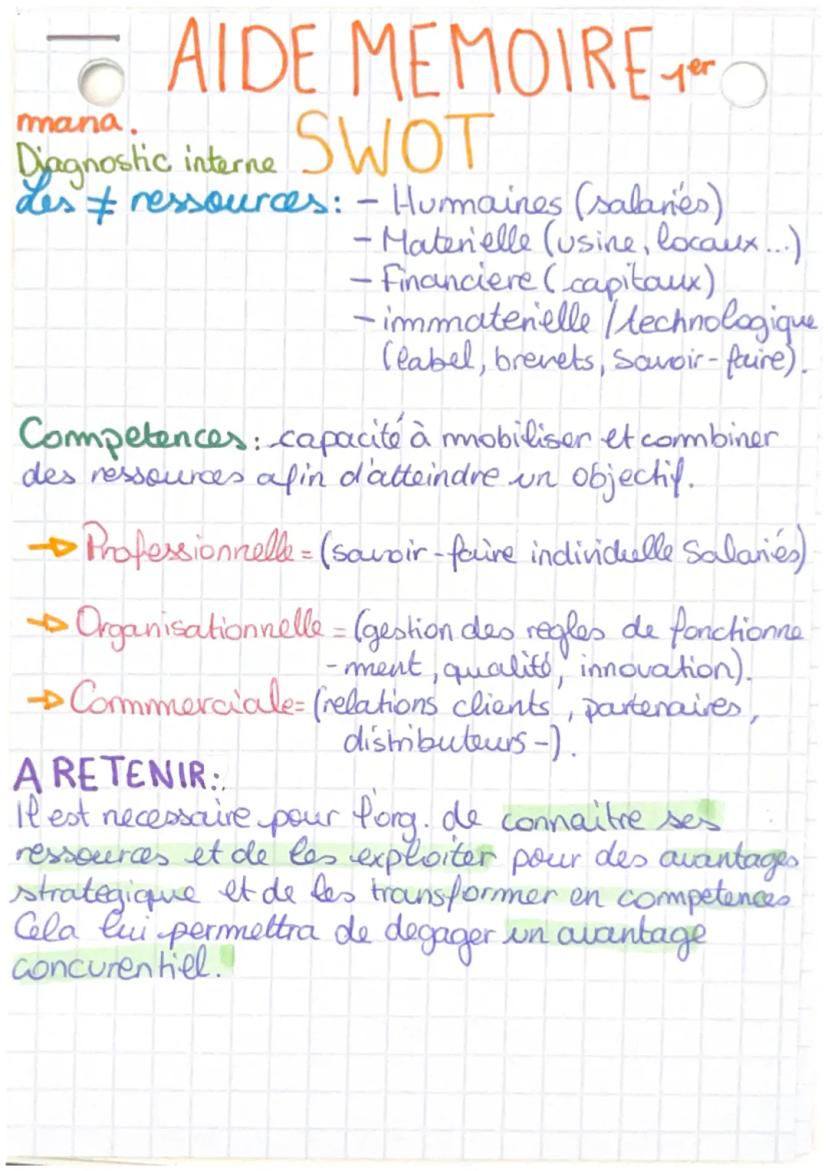 AIDE MEMOIRE 1er
mana.
SWOT
Diagnostic interne
Les ≠ ressources: - Humaines (salariés)
- Materielle (usine, locaux...)
- Financiere (capitaux)
- immaterielle / technologique
(label, brevets, savoir-faire).
Competences: capacité à mobiliser et combiner
des ressources afin d'atteindre un objectif.
→ Professionnelle = (savoir-faire individuelle Salariés)
→ Organisationnelle = (gestion des regles de fonctionne
-ment, qualité, innovation).
→ Commerciale= (relations clients, partenaires,
distributeurs -).
A RETENIR:
Il est necessaire pour l'org. de connaitre ses
ressources et de les exploiter pour des avantages
strategique et de les transformer en competences
Cela lui permettra de degager un avantage
concurentiel.